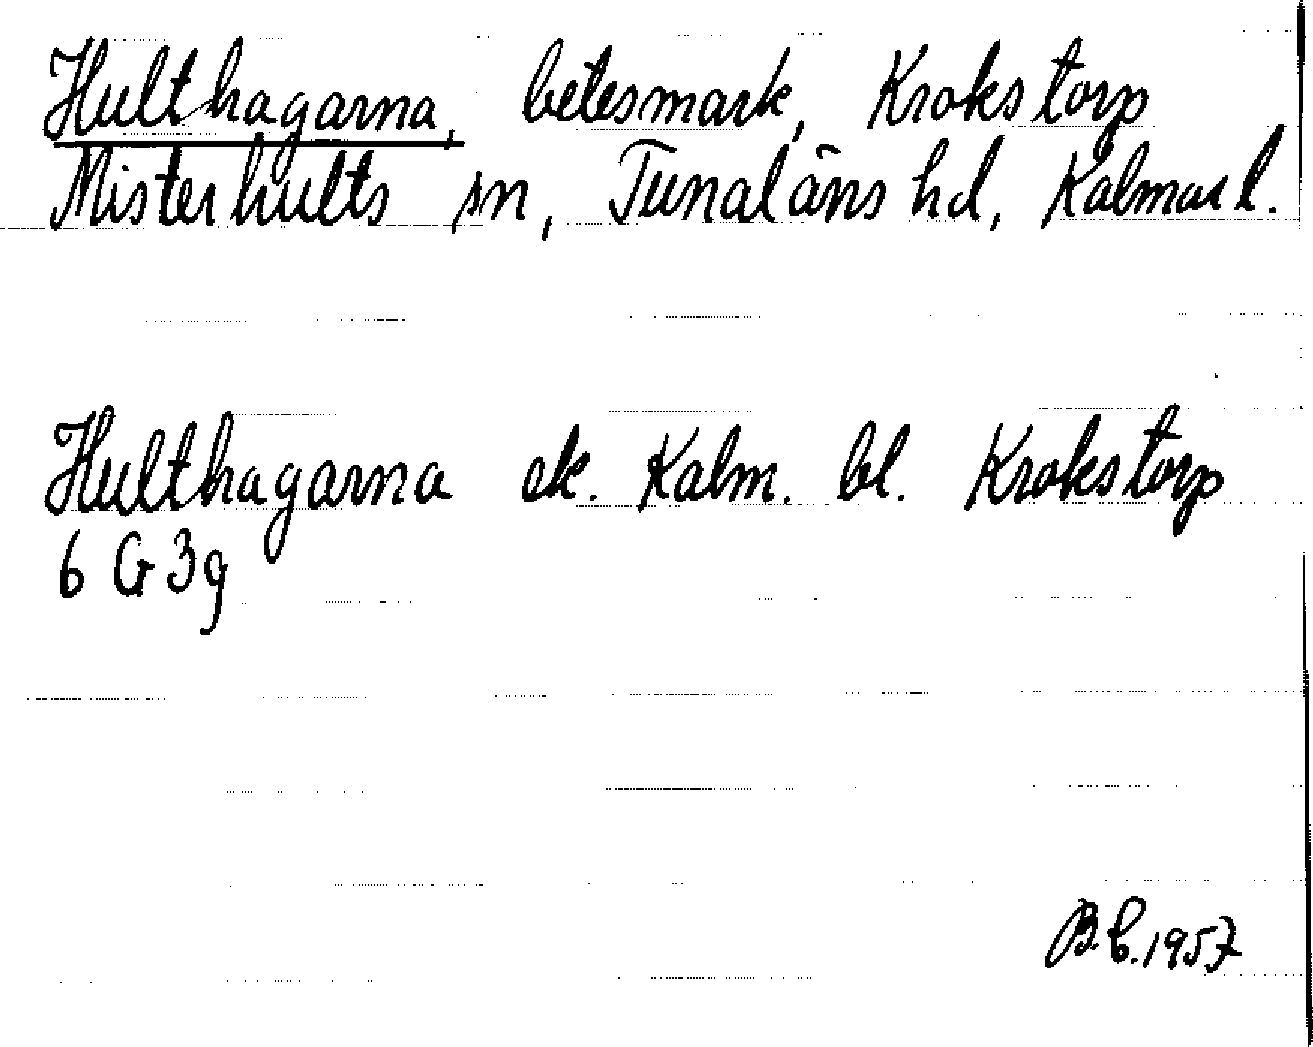 Hulthagarna, betesmark, Krokstorp
Misterhults sn, Tunaläns hd, Kalmar l.
Hulthagarna ek. Kalm. bl. Krokstorp
6 G 3g
B.b. 1957